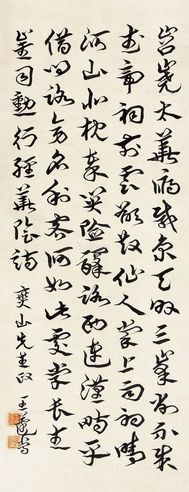 岧嶢太華俯咸京天外三峯削不成
武帝祠前雲欲散仙人掌上雨初晴
河山北枕秦關險驛路西連漢畤平
借問路旁名利客何如此處學長生
崔司勳行經華陰詩 山先生政 王